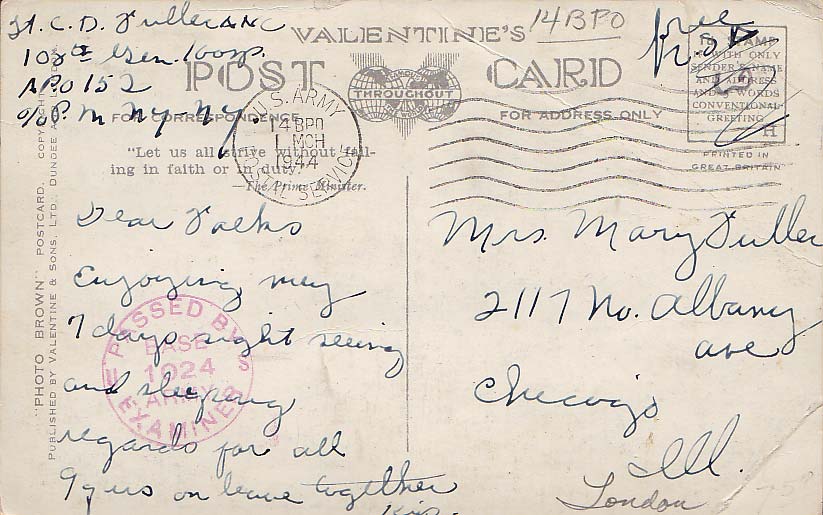 Lt. C. D. Fuller ANC
108th Gen. Hosp.
APO 152
c/o P. M. Ny. Ny.
14BPO
free
VALENTINE'S
POST CARD
FAMOUS
THROUGHOUT
THE WORLD
FOR CORRESPONDENCE
FOR ADDRESS ONLY
STAMP
WITH ONLY
SENDER'S NAME
AND ADDRESS
AND 5 WORDS
CONVENTIONAL
GREETING
H
PRINTED IN
GREAT BRITAIN
U.S. ARMY
14BPO
1 MCH
1944
POSTAL SERVICE
"Let us all strive without fail-
ing in faith or in duty."
—The Prime Minister.
"PHOTO BROWN" POSTCARD. COPYRIGHT
PUBLISHED BY VALENTINE & SONS, LTD., DUNDEE
Dear Folks
Enjoying my
7 days sight seeing
and sleeping
regards for all
9 of us on leave together
PASSED BY
BASE
1924
ARMY
EXAMINER
U S
Mrs. Mary Fuller
2117 No. Albany
ave
Chicago
Ill.
London